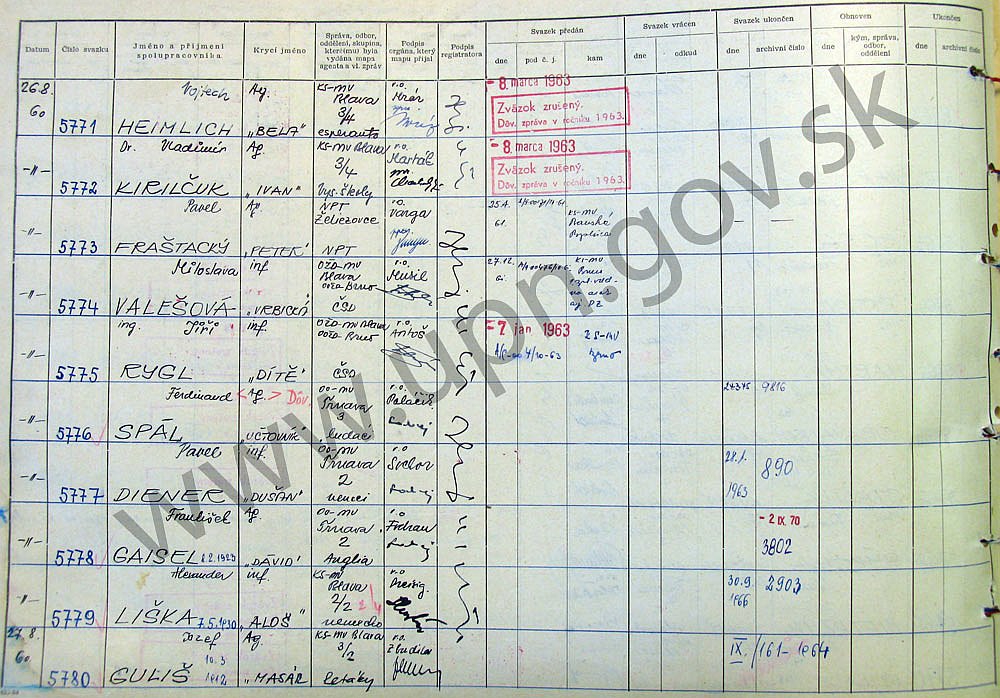 Datum
Číslo svazku
Jméno a příjmení spolupracovníka
Krycí jméno
Správa, odbor, oddělení, skupina, které(mu) byla vydána mapa agenta a vl. zpráv
Podpis orgána, který mapu přijal
Podpis registratora
Svazek předán
dne
pod č. j.
kam
Svazek vrácen
dne
odkud
Svazek ukončen
dne
archivní číslo
Obnoven
dne
kým, správa, odbor, oddělení
Ukončen
dne
archivní číslo
26.8. 60
5771
Vojtech HEIMLICH
Ag. „BELA"
KS-MV Blava 3/4 esperanto
r.o.
- 8. marca 1963
Zväzok zrušený.
Dův. zpráva v ročníku 1963.
-"-
5772
Dr. Vladimír KIRILČUK
Ag „IVAN"
KS-MV Blava 3/4 Vys. školy
r.o.
- 8. marca 1963
Zväzok zrušený.
Dův. zpráva v ročníku 1963.
-"-
5773
Pavel FRAŠTACKÝ
Ag. „PETER"
NPT Želiezovce NPT
r.o. Varga
25.4. 61.
KS-MV Banská Bystrica
-"-
5774
Miloslava VALEŠOVÁ
inf „VRBICKÁ"
OŽD-MV Blava Brno ČSD
r.o. Musil
27.12. 61.
KS-MV Brno
-"-
5775
ing. Jiří RYGL
inf „DÍTĚ"
OŽD-MV Blava Brno ČSD
r.o. Antoš
- 7. jan 1963
KS-MV Brno
-"-
5776
Ferdinand SPÁL
< Ag. > Dův.
„ÚČTOVNÍK"
OO-MV Trnava 3 ľudáci
r.o.
9816
-"-
5777
Pavel DIENER
inf. „DUŠAN"
OO-MV Trnava 2 nemci
r.o.
28.1. 1963
890
-"-
5778
František GAISEL 2.2.1923
Ag. „DÁVID"
OO-MV Trnava 2 Anglia
r.o.
- 2 IX. 70
3802
-"-
5779
Alexander LIŠKA 7.5.1930
inf. „ALOŠ"
KS-MV Blava 2/2 nemecko
r.o.
30.9. 1966
2903
27.8. 60
5780
Jozef GULIŠ 10.3 1912
Ag. „MASÁR"
KS-MV Blava 3/2 letáky
r.o.
IX. /161-1964
www.upn.gov.sk